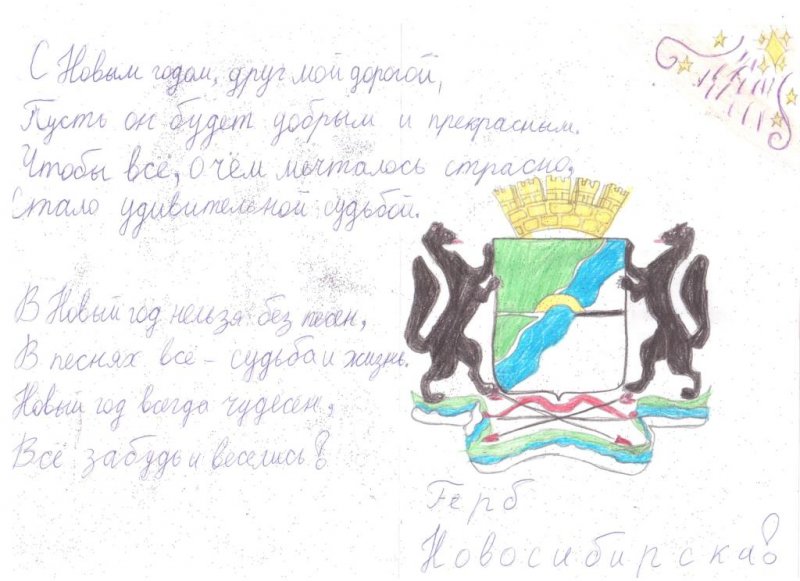 С Новым годом, друг мой дорогой,
Пусть он будет добрым и прекрасным.
Чтобы всё, о чём мечталось страсно,
Стало удивительной судьбой.
В Новый год нельзя без песен,
В песнях всё – судьба и жизнь.
Новый год всегда чудесен,
Всё забудь и веселись!
Герб
Новосибирска!